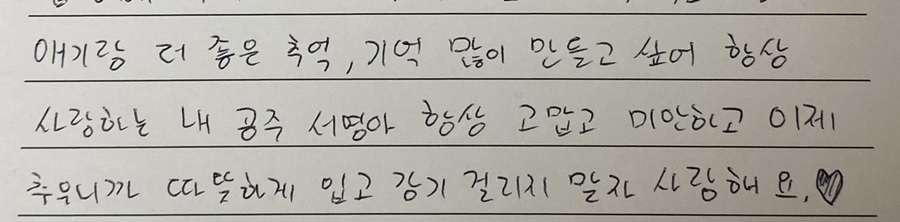 애기랑 더 좋은 추억, 기억 많이 만들고 싶어 항상
사랑하는 내 공주 서영아 항상 고맙고 미안하고 이제
추우니까 따뜻하게 입고 감기 걸리지 말자 사랑해 요.♥